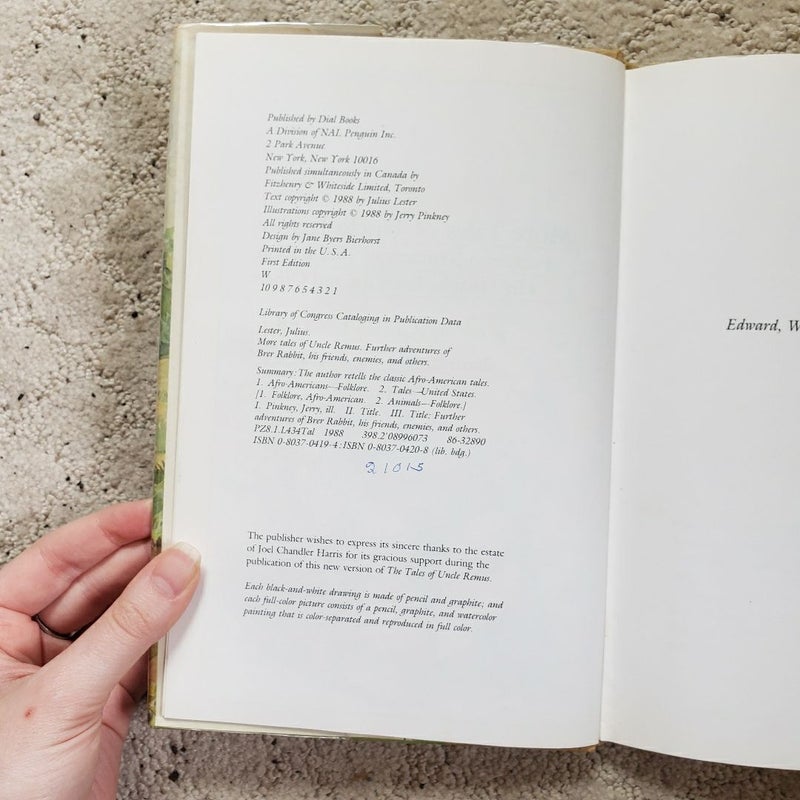 Published by Dial Books
A Division of NAL Penguin Inc.
2 Park Avenue
New York, New York 10016
Published simultaneously in Canada by
Fitzhenry & Whiteside Limited, Toronto
Text copyright © 1988 by Julius Lester
Illustrations copyright © 1988 by Jerry Pinkney
All rights reserved
Design by Jane Byers Bierhorst
Printed in the U.S.A.
First Edition
W
10 9 8 7 6 5 4 3 2 1
Library of Congress Cataloging in Publication Data
Lester, Julius.
More tales of Uncle Remus. Further adventures of
Brer Rabbit, his friends, enemies, and others.
Summary: The author retells the classic Afro-American tales.
1. Afro-Americans—Folklore. 2. Tales—United States.
[1. Folklore, Afro-American. 2. Animals—Folklore.]
I. Pinkney, Jerry, ill. II. Title. III. Title: Further
adventures of Brer Rabbit, his friends, enemies, and others.
PZ8.1.L434Tal 1988 398.2'08996073 86-32890
ISBN 0-8037-0419-4: ISBN 0-8037-0420-8 (lib. bdg.)
21015
The publisher wishes to express its sincere thanks to the estate
of Joel Chandler Harris for its gracious support during the
publication of this new version of The Tales of Uncle Remus.
Each black-and-white drawing is made of pencil and graphite; and
each full-color picture consists of a pencil, graphite, and watercolor
painting that is color-separated and reproduced in full color.
Edward, W